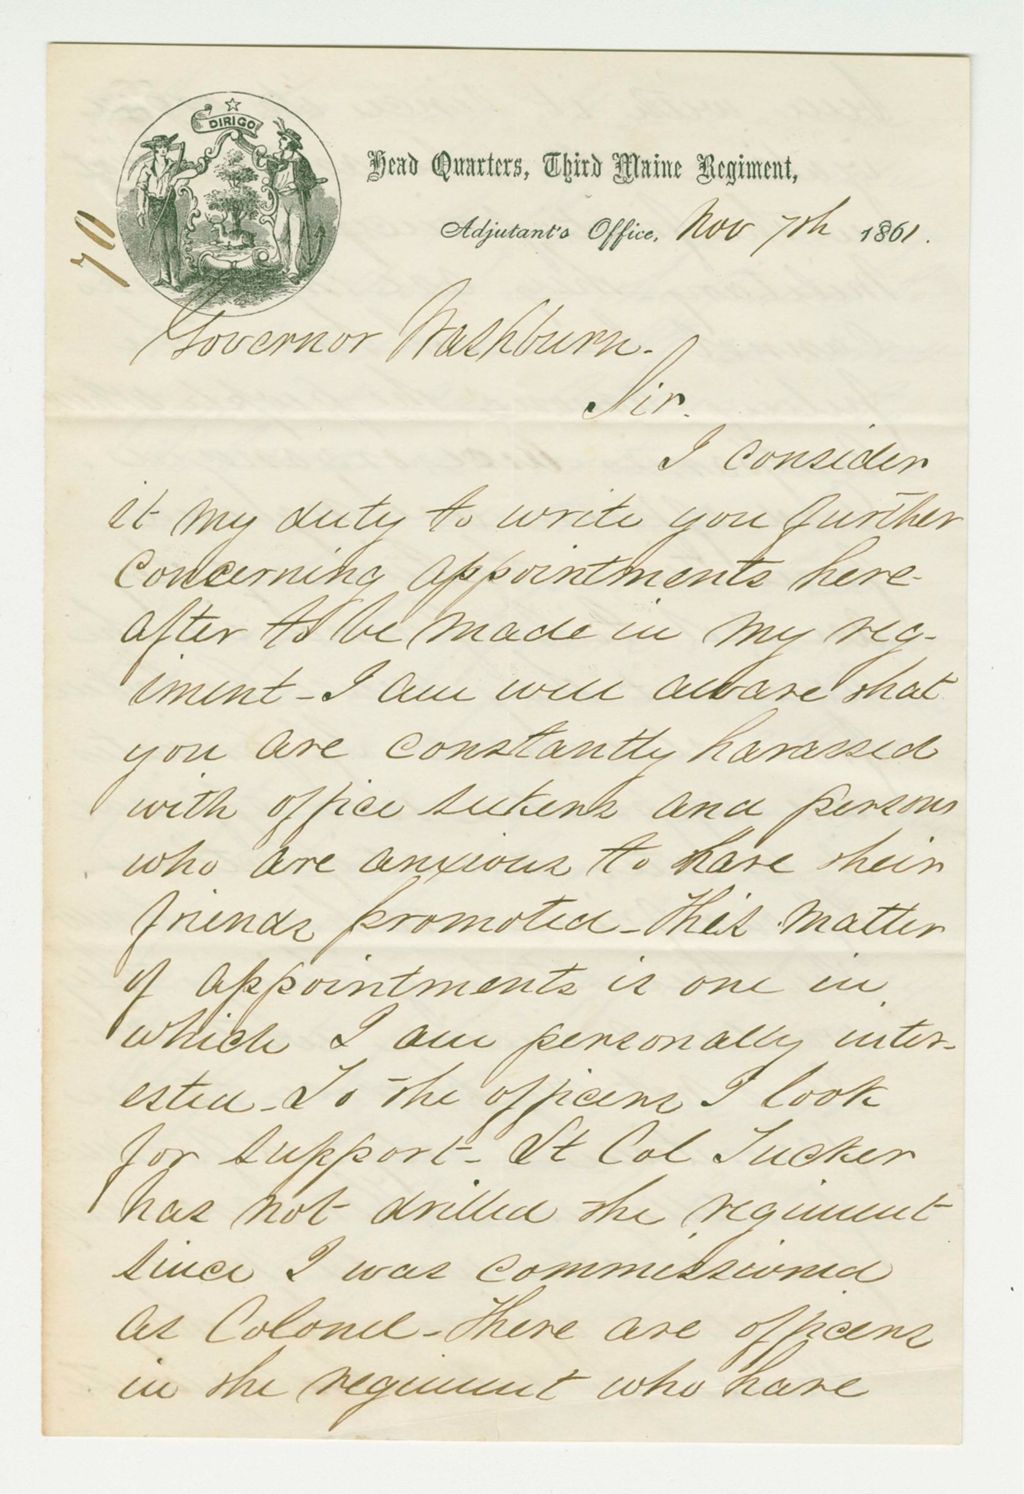 DIRIGO
Head Quarters, Third Maine Regiment,
Adjutant's Office, Nov 7th 1861.
70
Governor Washburn.
Sir.
I consider
it my duty to write you further
concerning appointments here-
after to be made in my reg-
iment - I am well aware that
you are constantly harassed
with office seekers and persons
who are anxious to have their
friends promoted - This matter
of appointments is one in
which I am personally inter-
ested - To the officers I look
for support - Lt Col Tucker
has not drilled the regiment
since I was commissioned
as Colonel - There are officers
in the regiment who have